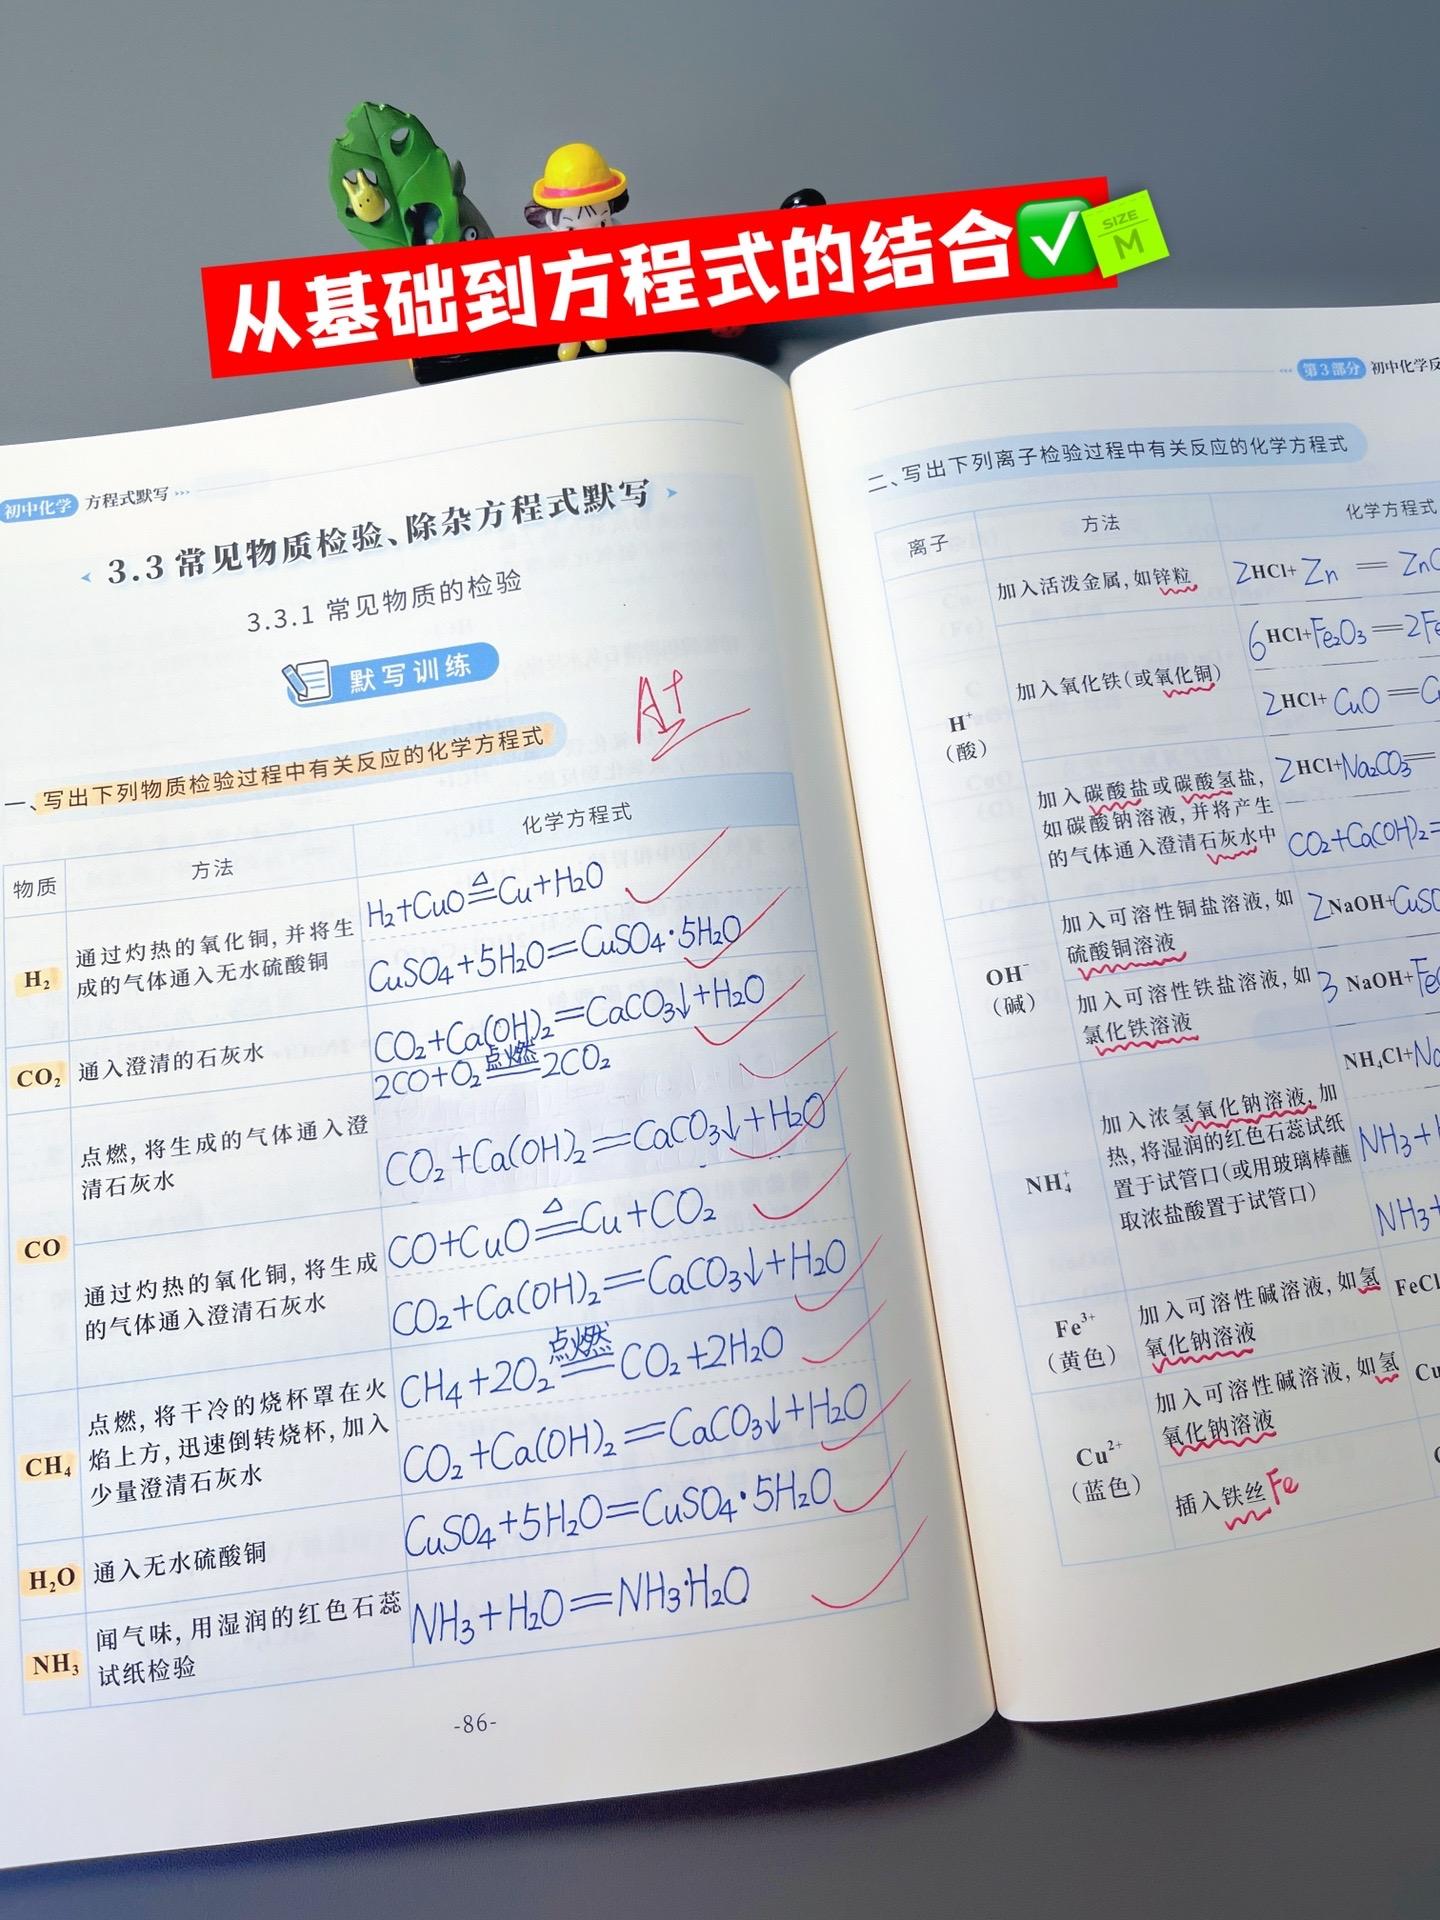 从基础到方程式的结合✅
SIZE
M
初中化学 方程式默写
3.3 常见物质检验、除杂方程式默写
3.3.1 常见物质的检验
默写训练
A+
一、写出下列物质检验过程中有关反应的化学方程式
物质 方法 化学方程式
H₂
通过灼热的氧化铜,并将生
成的气体通入无水硫酸铜
H₂+CuO≜Cu+H₂O
CuSO₄+5H₂O=CuSO₄·5H₂O
CO₂ 通入澄清的石灰水
CO₂+Ca(OH)₂=CaCO₃↓+H₂O
CO
点燃,将生成的气体通入澄
清石灰水
2CO+O₂ 点燃 2CO₂
CO₂+Ca(OH)₂=CaCO₃↓+H₂O
通过灼热的氧化铜,将生成
的气体通入澄清石灰水
CO+CuO≜Cu+CO₂
CO₂+Ca(OH)₂=CaCO₃↓+H₂O
CH₄
点燃,将干冷的烧杯罩在火
焰上方,迅速倒转烧杯,加入
少量澄清石灰水
CH₄+2O₂ 点燃 CO₂+2H₂O
CO₂+Ca(OH)₂=CaCO₃↓+H₂O
H₂O 通入无水硫酸铜
CuSO₄+5H₂O=CuSO₄·5H₂O
NH₃
闻气味,用湿润的红色石蕊
试纸检验
NH₃+H₂O=NH₃·H₂O
-86-
第3部分 初中化学反
二、写出下列离子检验过程中有关反应的化学方程式
离子 方法 化学方程式
H⁺
(酸)
加入活泼金属,如锌粒
2HCl+Zn=
加入氧化铁(或氧化铜)
6HCl+Fe₂O₃=2Fe
2HCl+CuO=
加入碳酸盐或碳酸氢盐,
如碳酸钠溶液,并将产生
的气体通入澄清石灰水中
2HCl+Na₂CO₃=
CO₂+Ca(OH)₂=
OH⁻
(碱)
加入可溶性铜盐溶液,如
硫酸铜溶液
2NaOH+
加入可溶性铁盐溶液,如
氯化铁溶液
3NaOH+
NH₄⁺
加入浓氢氧化钠溶液,加
热,将湿润的红色石蕊试纸
置于试管口(或用玻璃棒蘸
取浓盐酸置于试管口)
NH₄Cl+
NH₃+
NH₃+
Fe³⁺
(黄色)
加入可溶性碱溶液,如氢
氧化钠溶液
FeCl
Cu²⁺
(蓝色)
加入可溶性碱溶液,如氢
氧化钠溶液
Cu
插入铁丝Fe